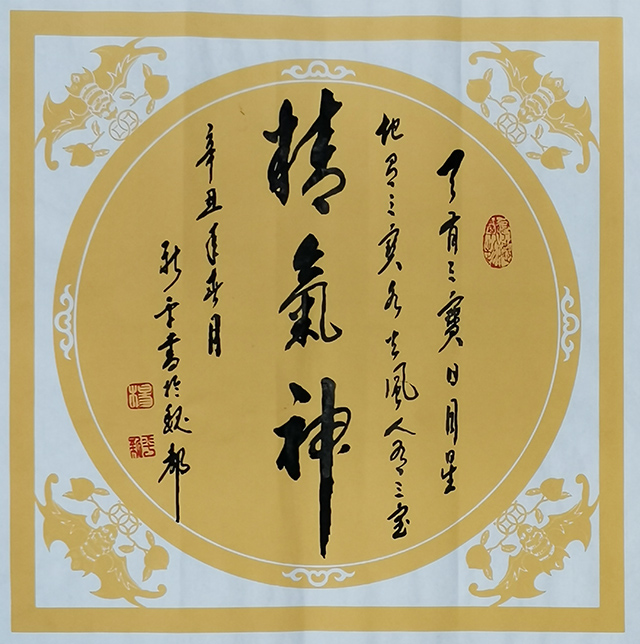 天有三寶日月星
地有三寶水火風人有三宝
精氣神
辛丑年春月
新平書於魏都